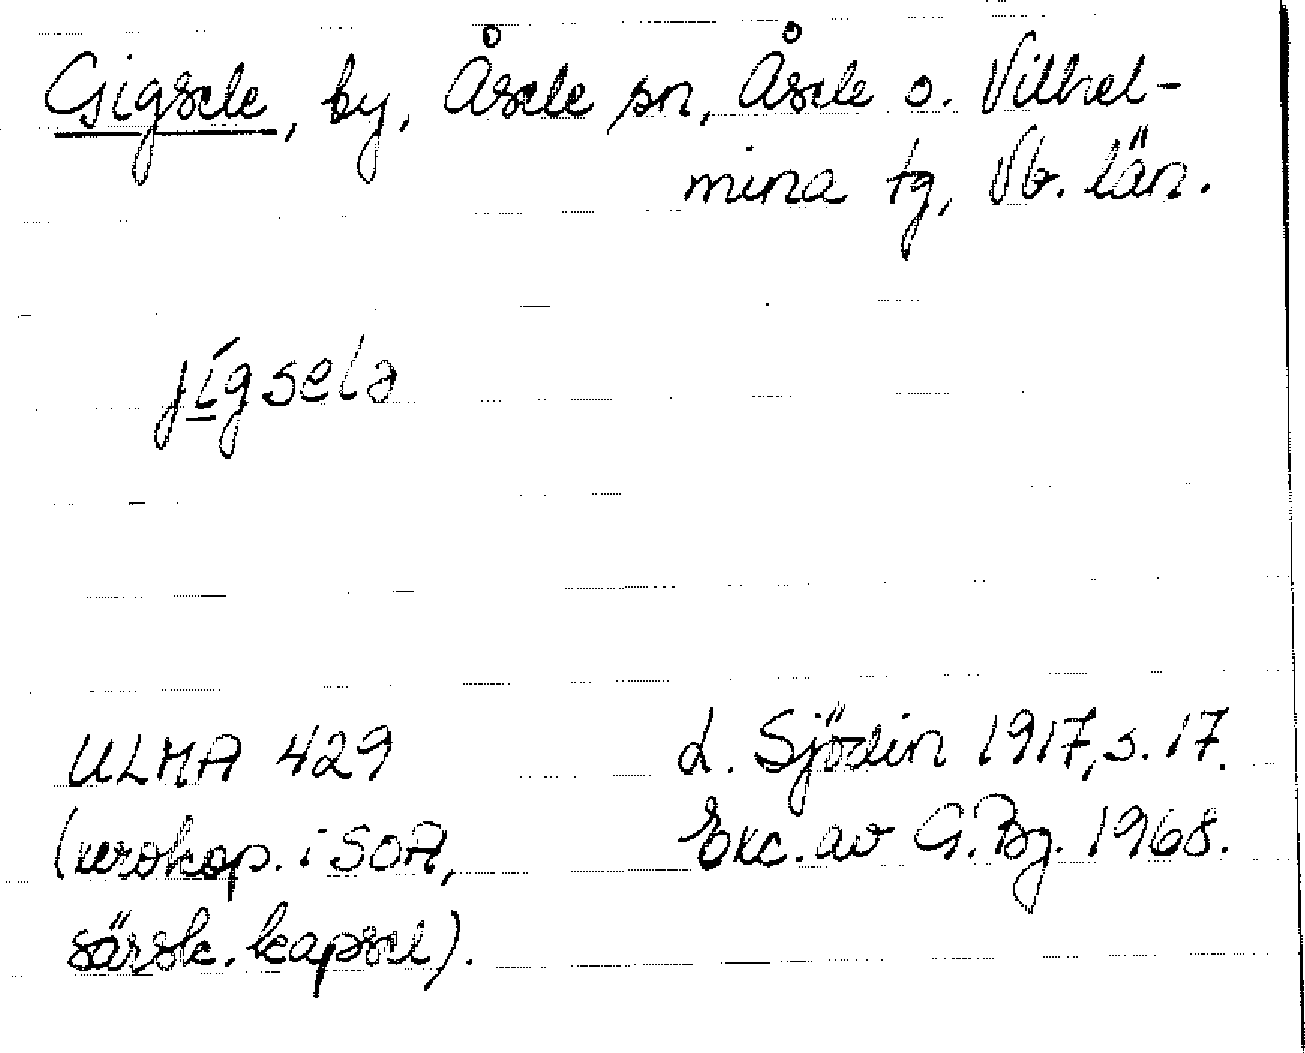 Gigsele, by, Åsele sn, Åsele o. Vilhel-
mina tg, Vb. län.
jígselə
ULMA 429
(xerokop. i SOA,
särsk. kapsel).
L. Sjödin 1917, s. 17.
Exc. av G. Bg. 1968.